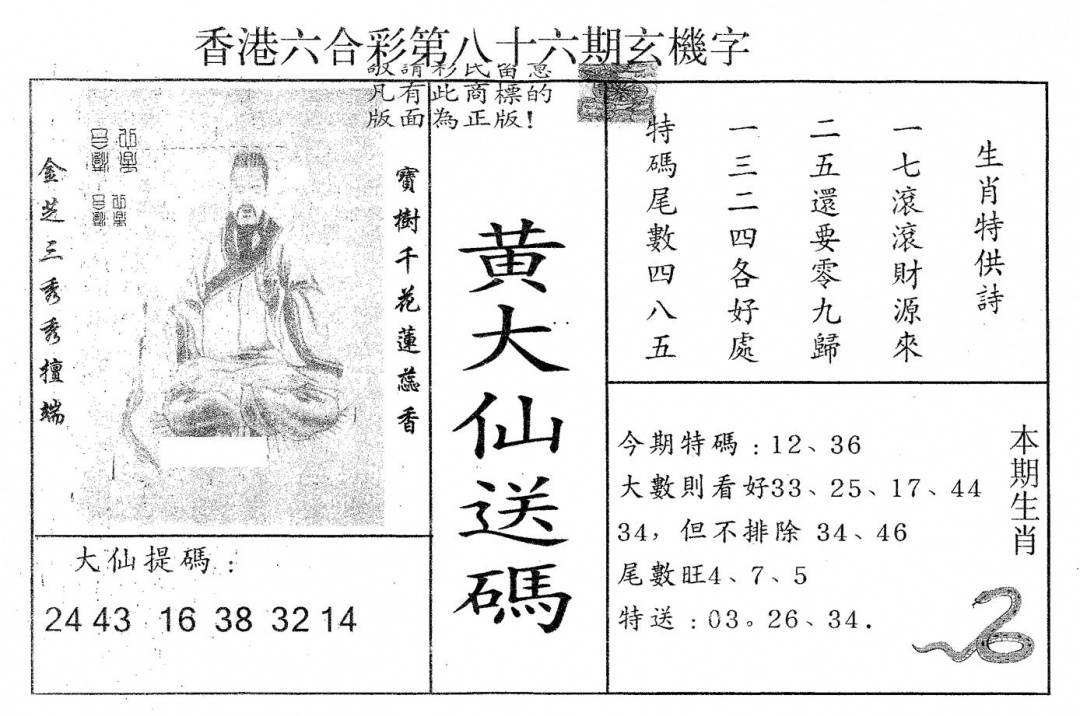 香港六合彩第八十六期玄機字
敬請彩民留意
凡有此商標的
版面為正版!
生肖特供詩
一七滾滾財源來
二五還要零九歸
一三二四各好處
特碼尾數四八五
黃大仙送碼
寶樹千花蓮蕊香
金芝三秀秀擅端
大仙提碼：
24 43 16 38 32 14
今期特碼：12、36
大數則看好33、25、17、44
34，但不排除 34、46
尾數旺4、7、5
特送：03。26、34．
本期生肖